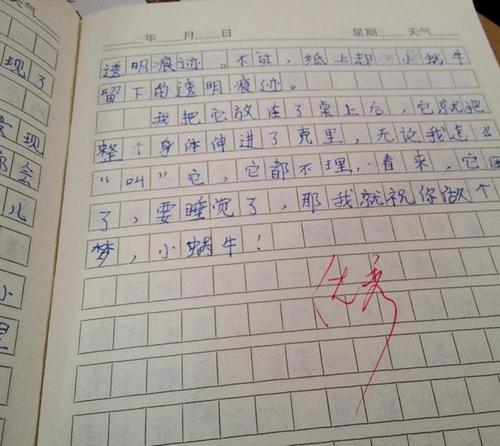 天气
现了
发现
会
儿
小
里
年 月 日 星期 天气
透明痕迹。不过,纸上却 小蜗牛
留下的透明痕迹。
我把它放在了桌上后,它就把
整个身体伸进了克里,无论我怎
“叫”它,它都不理,看来,它困
了,要睡觉了,那我就祝你做个
梦,小蜗牛!
优秀